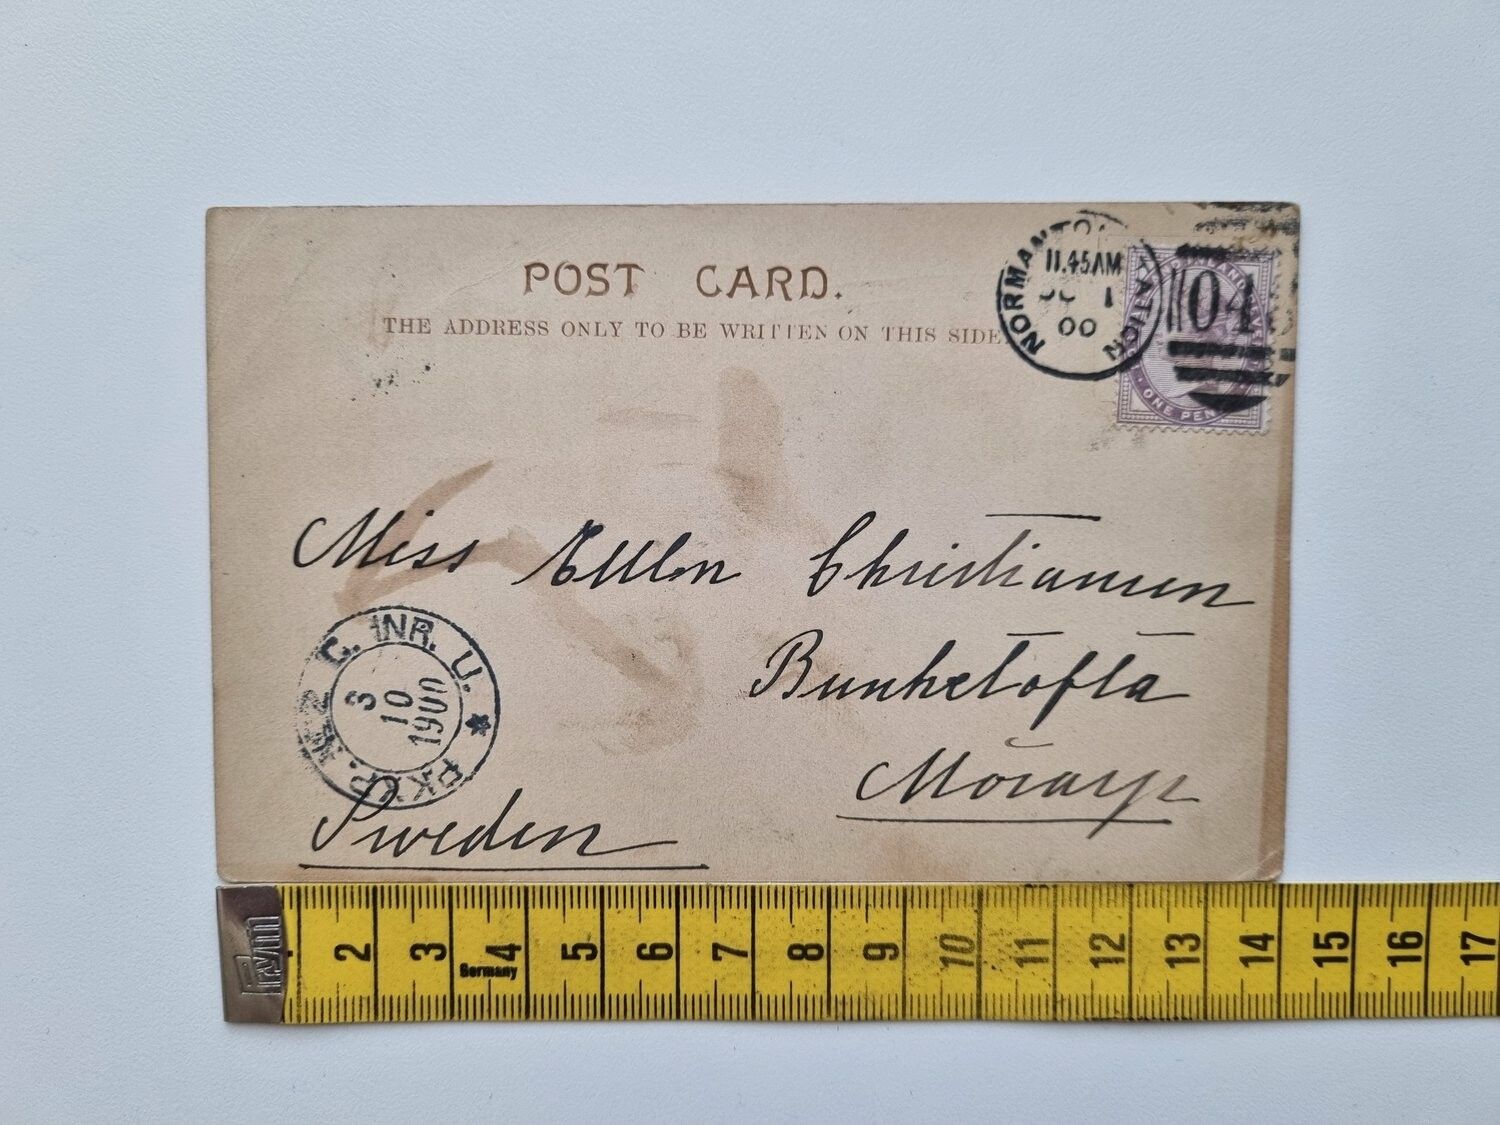 POST CARD.
THE ADDRESS ONLY TO BE WRITTEN ON THIS SIDE.
NORMANTON STATION
11.45AM
OC 1
00
104
ONE PENNY
Miss Ellen Christiansen
Bunketofta
Mörarp
Sweden
PKXP. Nr 2 C. INR. U. *
3
10
1900
Prym
2 3 4 5 6 7 8 9 10 11 12 13 14 15 16 17
Germany